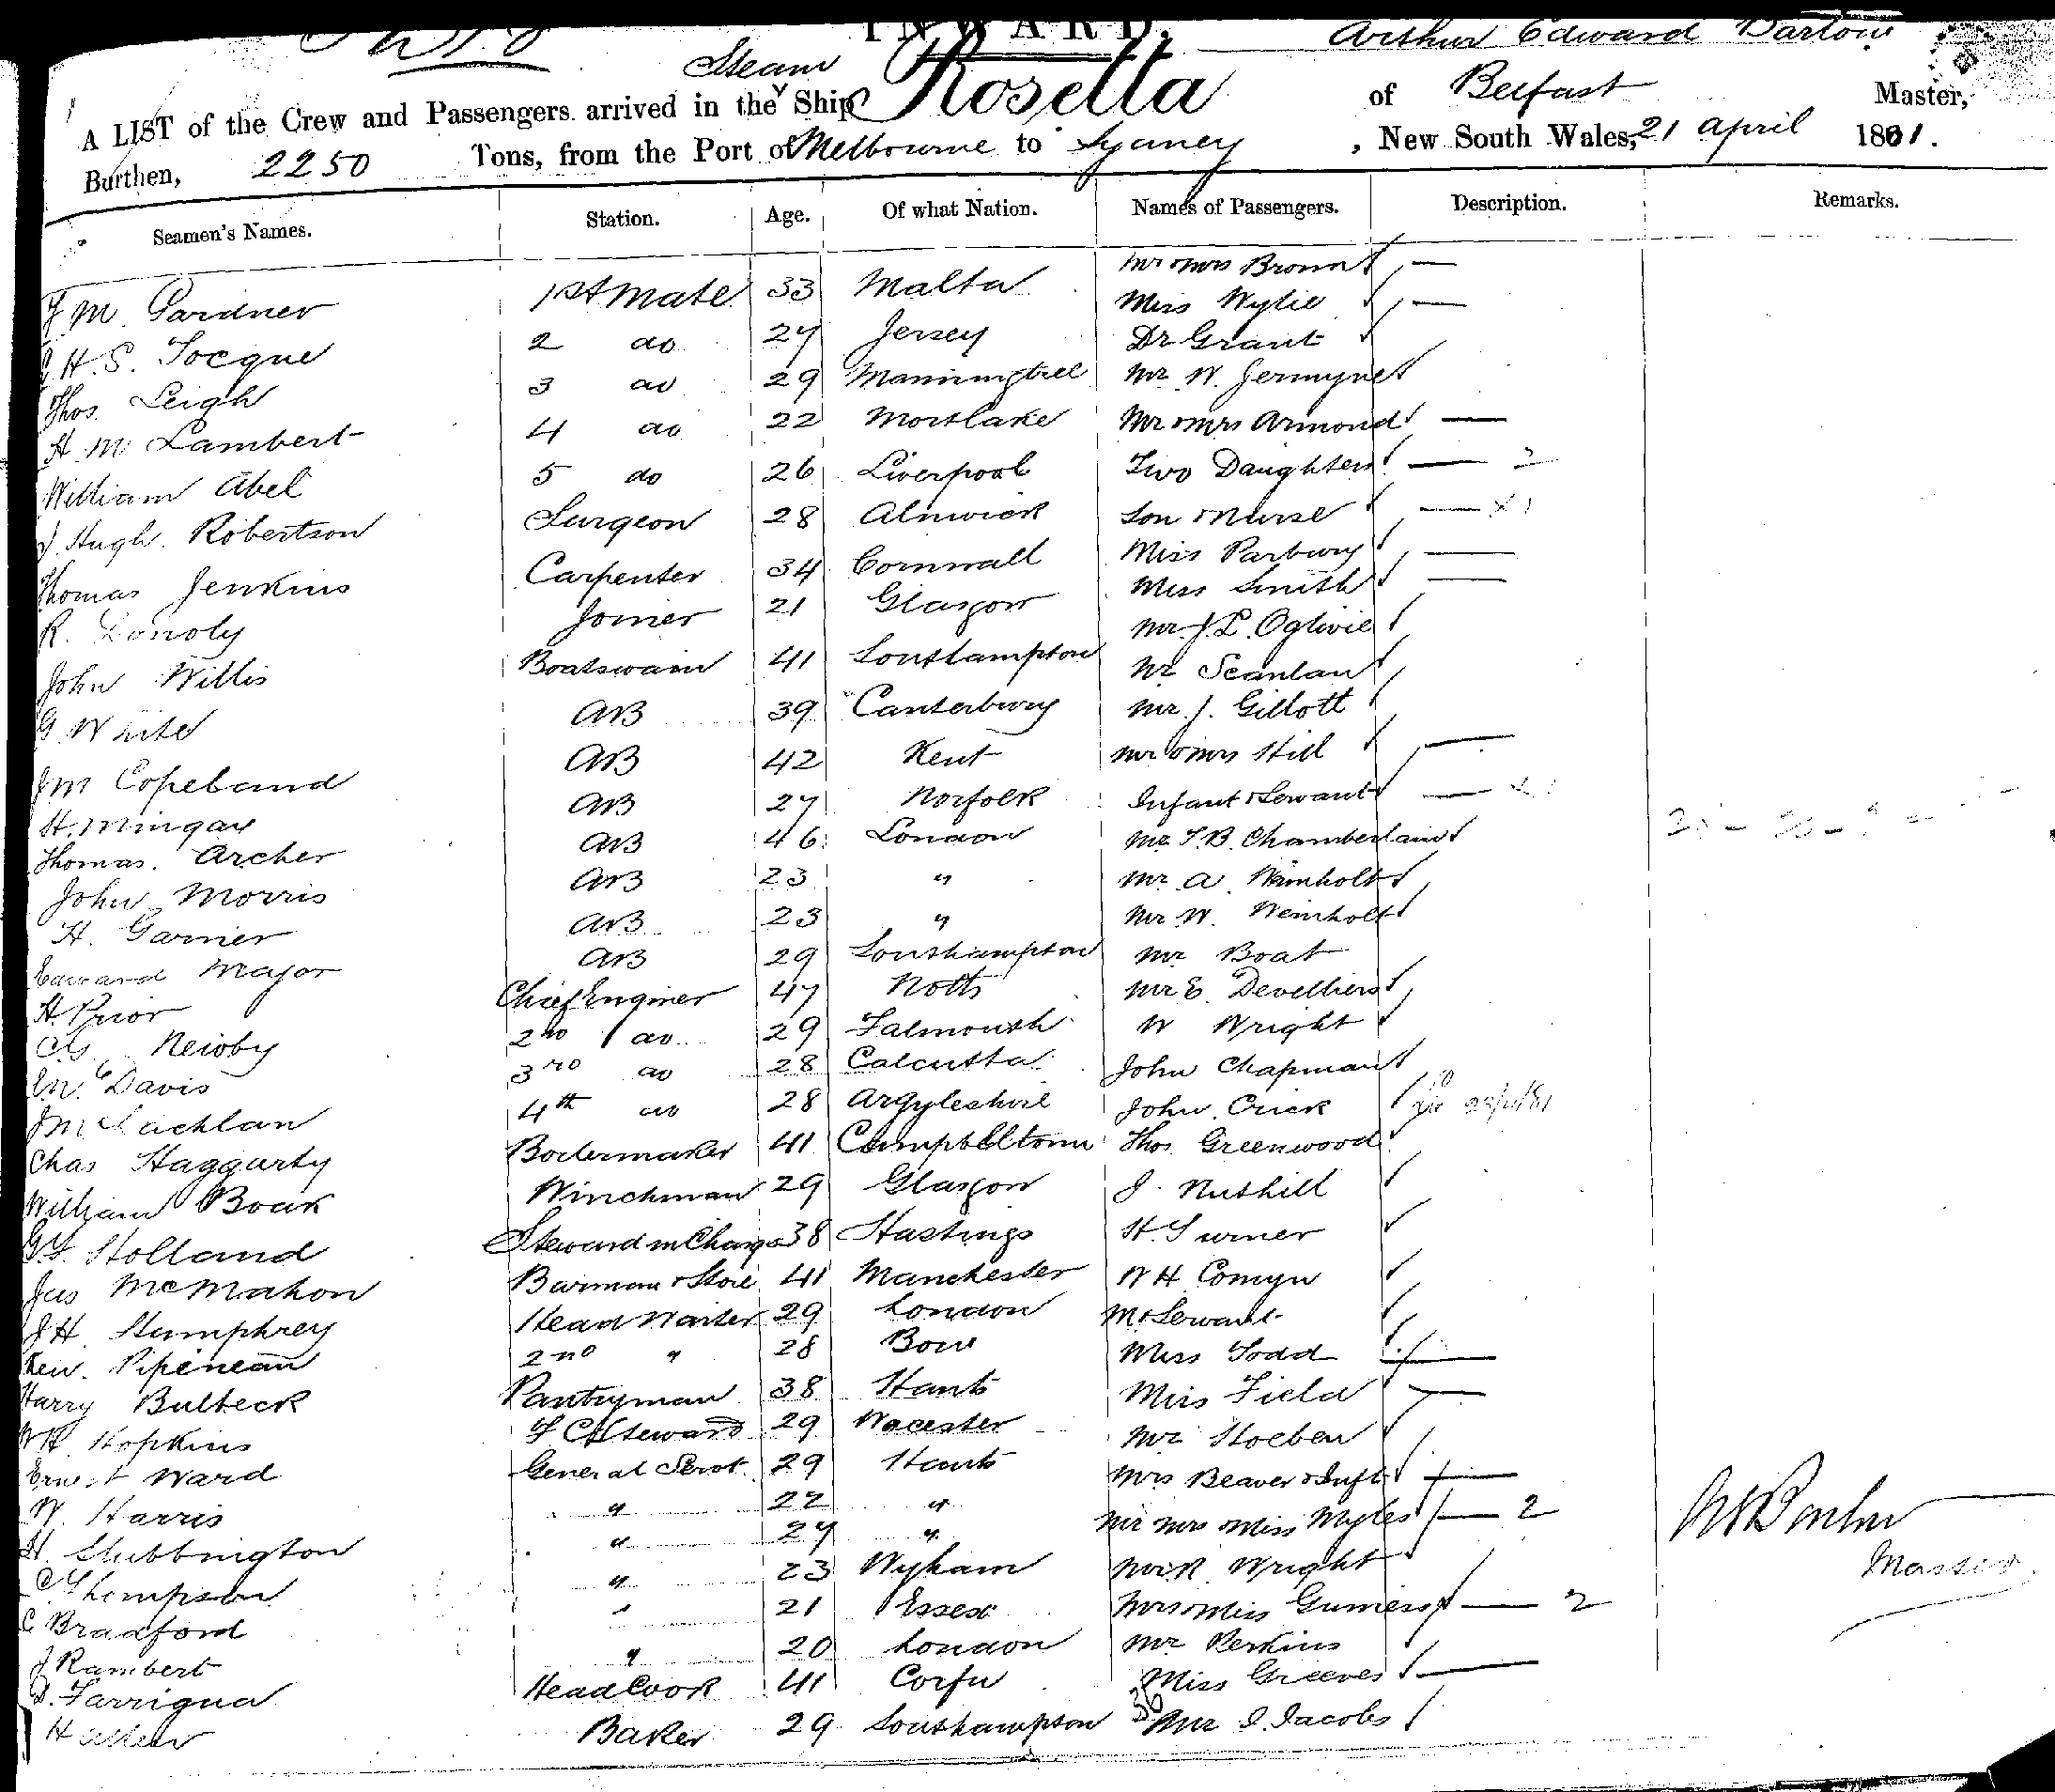 INWARD.
Arthur Edward Barlow
Steam
A LIST of the Crew and Passengers arrived in the Ship Rosetta of Belfast Master,
Burthen, 2250 Tons, from the Port of Melbourne to Sydney, New South Wales, 21 April 1881.
Seamen's Names. Station. Age. Of what Nation. Names of Passengers. Description. Remarks.
J M Gardner 1st Mate 33 Malta Mr & Mrs Brown
Miss Wylie
J H. S. Tocque 2 do 27 Jersey Dr Grant
Thos Leigh 3 do 29 Manningtree Mr W. Jermyne
H M Lambert 4 do 22 Mortlake Mr & Mrs Armond
William Abel 5 do 26 Liverpool Two Daughters 2
J. Hugh. Robertson Surgeon 28 Alnwick Son & Nurse
Thomas Jenkins Carpenter 34 Cornwall Miss Parbury
Miss Smith
R. Joiner 21 Glasgow Mr J. L. Ogilvie
John Willis Boatswain 41 Southampton Mr Scanlan
G. White AB 39 Canterbury Mr J. Gillott
Copeband AB 42 Kent Mr & Mrs Hill
H. Mingay AB 27 Norfolk Infant & Servant
Thomas. Archer AB 46 London Mr T. B. Chamberlain
John Morris AB 23 " Mr A Weinholt
H. Garnier AB 23 " Mr W. Weinholt
Edward Major AB 29 Southampton Mr Boat
H. Prior Chief Enginer 47 Notts Mr E. Develliers
Newby 2nd do 29 Falmouth W Wright
Davis 3rd do 28 Calcutta John Chapman
J McLachlan 4th do 28 Argyleshire John Crick
Chas Haggarty Boilermaker 41 Campbelltown Thos Greenwood
William Boak Winchman 29 Glasgow J. Nuthill
Holland Steward in Charge 38 Hastings H. Turner
Jas McMahon Barman & Store 41 Manchester W H Comyn
J H Humphrey Head Waiter 29 London & Servant
Pipeneau 2nd " 28 Bow Miss Todd
Harry Bulbeck Pantryman 38 Hants Miss Field
Hopkins Steward 29 Wocester Mr Hoeben
Ernest Ward General Servt 29 Hants Mrs Beaver & Inft
W. Harris " 22 " Mr Mrs & Miss Myles 2
H. Stubbington " 27 " Mr R. Wright
Thompson " 23 Wyham Mrs & Miss Gumers 2
C Bradford " 21 Essex Mr Perkins
J Rambert " 20 London Miss Greeves
D. Farrigua Head Cook 41 Corfu Mr I. Jacobs
36
H Baker 29 Southampton
Master